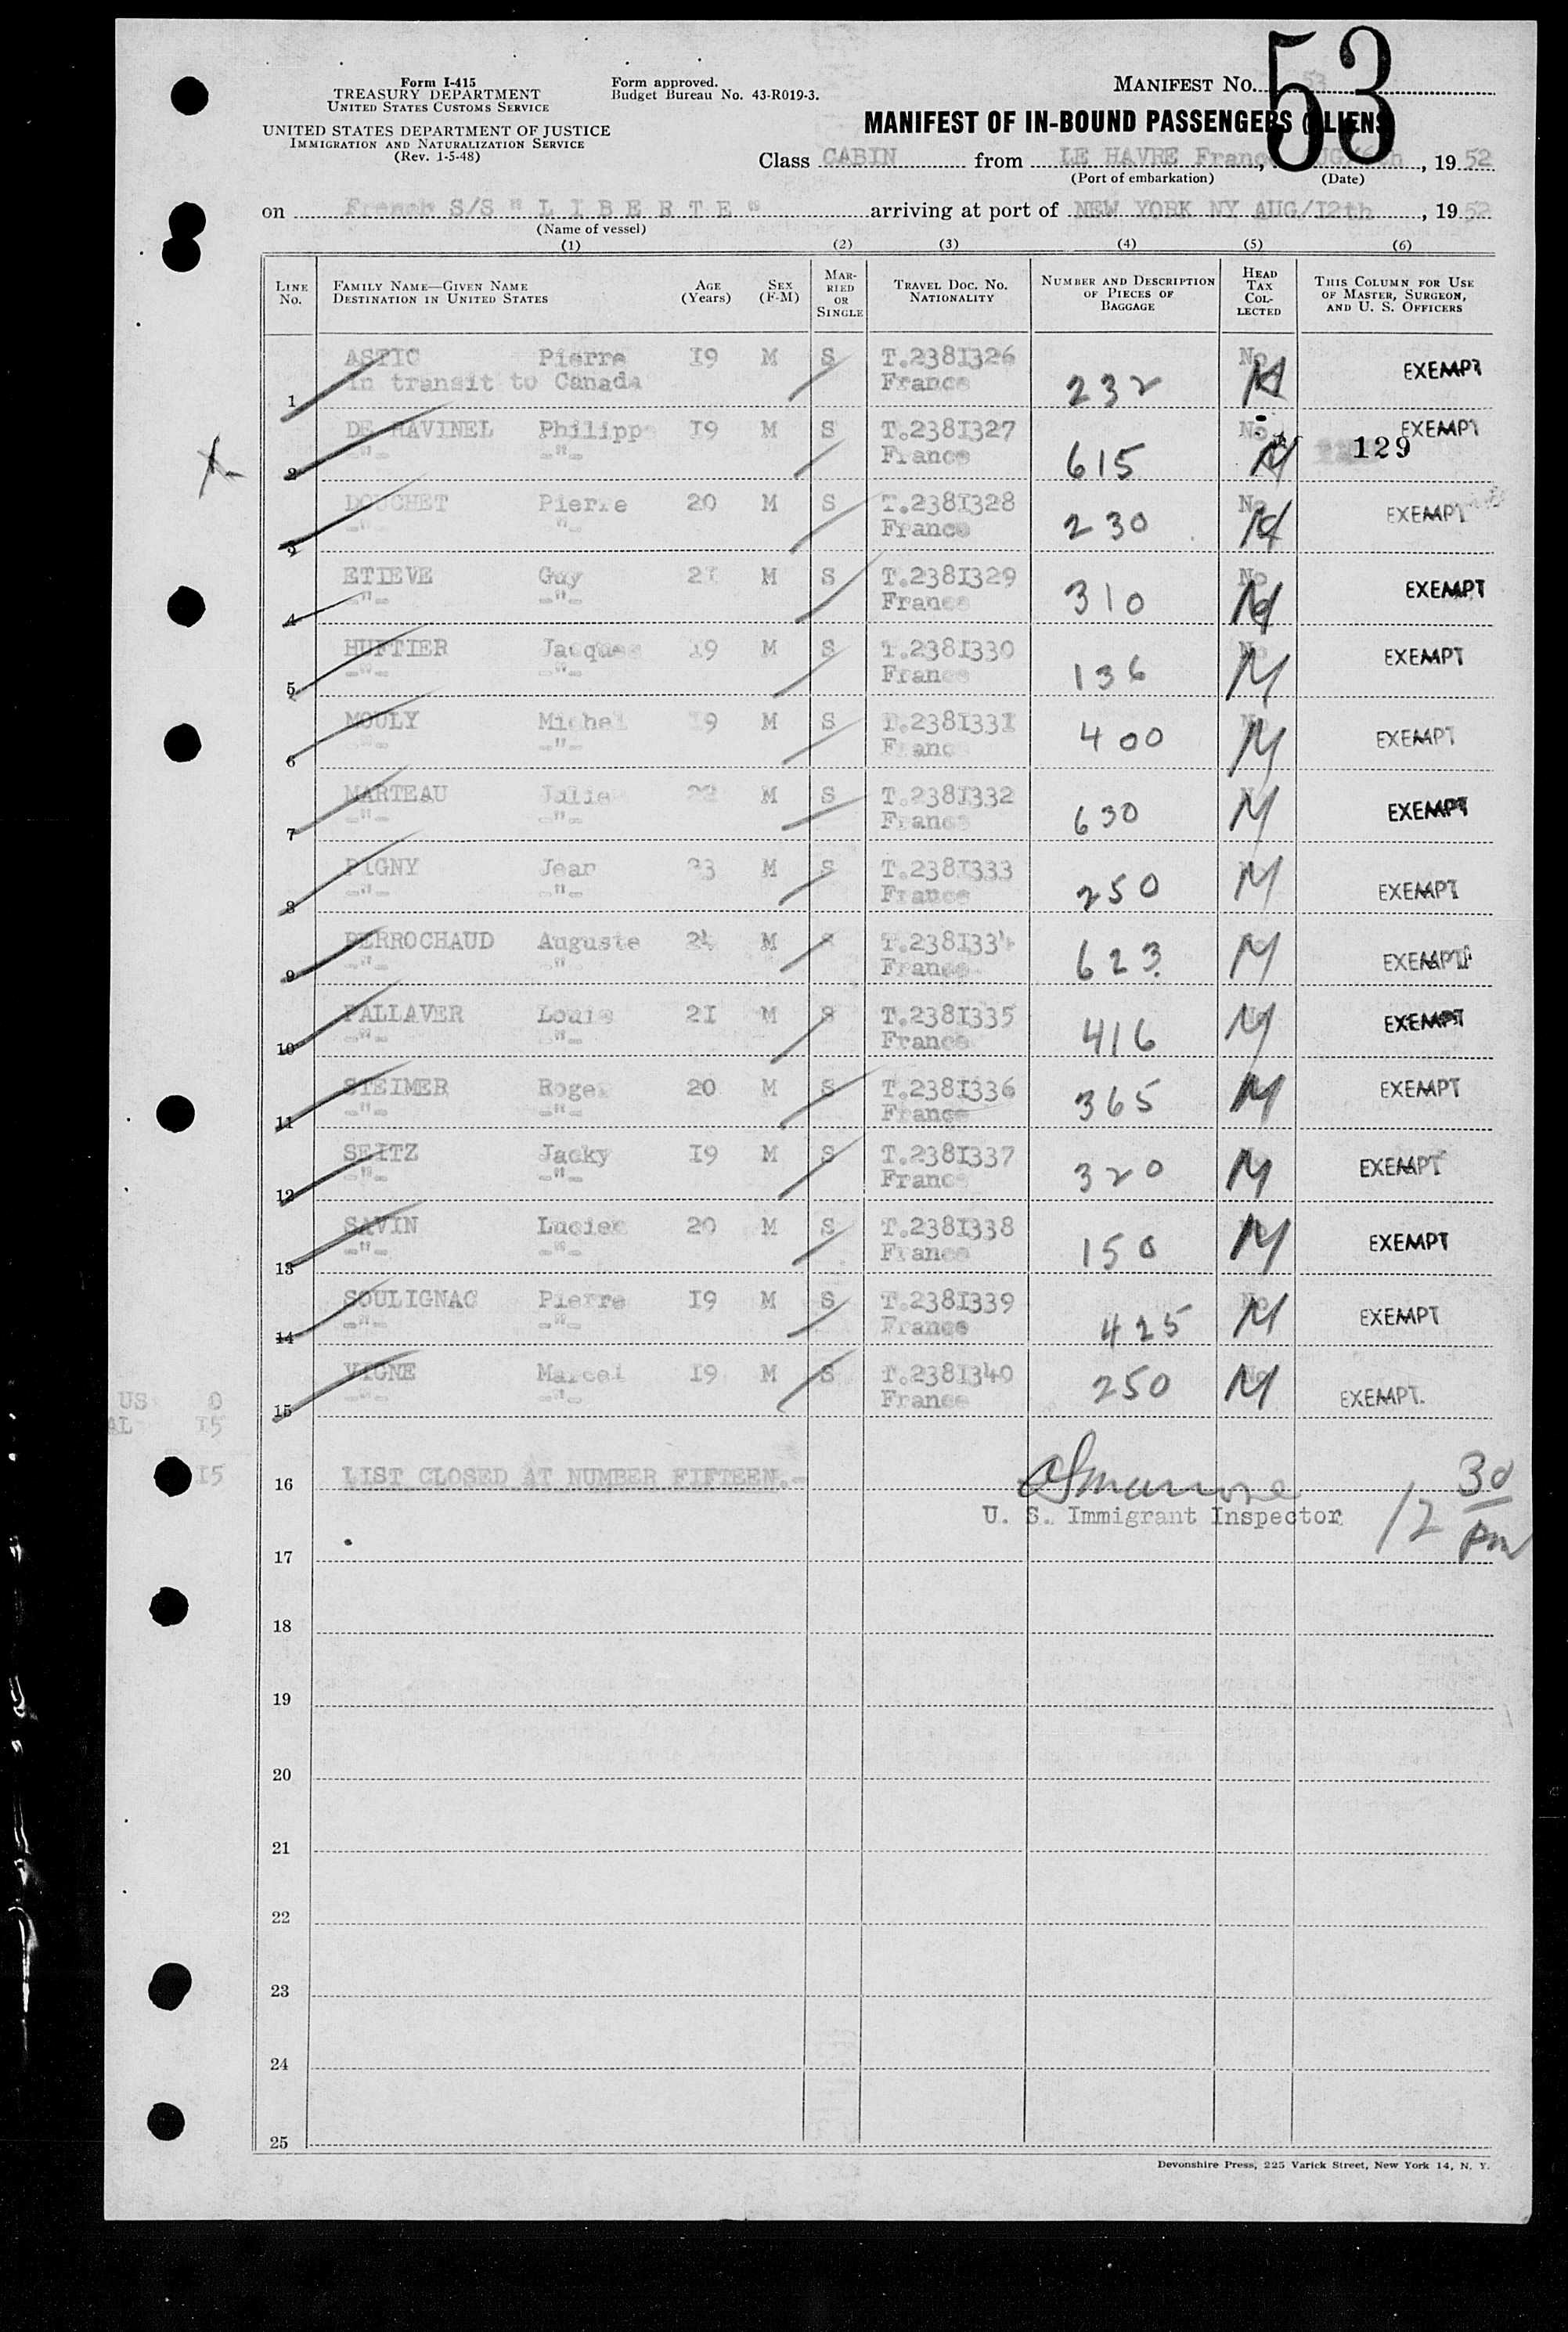 53
Form I-415
TREASURY DEPARTMENT
UNITED STATES CUSTOMS SERVICE
Form approved.
Budget Bureau No. 43-R019-3.
MANIFEST No. 53
UNITED STATES DEPARTMENT OF JUSTICE
IMMIGRATION AND NATURALIZATION SERVICE
(Rev. 1-5-48)
MANIFEST OF IN-BOUND PASSENGERS (ALIENS
Class CABIN from LE HAVRE France, , 19 52
(Port of embarkation) (Date)
on French S/S " L I B E R T E " arriving at port of NEW YORK NY AUG/12th, 19 52
(Name of vessel)
(1) (2) (3) (4) (5) (6)
LINE No. FAMILY NAME—GIVEN NAME DESTINATION IN UNITED STATES AGE (Years) SEX (F-M) MARRIED OR SINGLE TRAVEL DOC. No. NATIONALITY NUMBER AND DESCRIPTION OF PIECES OF BAGGAGE HEAD TAX COLLECTED THIS COLUMN FOR USE OF MASTER, SURGEON, AND U. S. OFFICERS
1 ASTIC Pierre 19 M S T.2381326 232 No EXEMPT
In transit to Canada France
2 DE RAVINEL Philippe 19 M S T.2381327 615 No EXEMPT
-"- -"- France 129
3 DOUCHET Pierre 20 M S T.2381328 230 No EXEMPT
-"- -"- France
4 ETIEVE Guy 21 M S T.2381329 310 No EXEMPT
-"- -"- France
5 HUFTIER Jacques 19 M S T.2381330 136 No EXEMPT
-"- -"- France
6 MOULY Michel 19 M S T.2381331 400 EXEMPT
-"- -"- France
7 MARTEAU Julie 22 M S T.2381332 630 EXEMPT
-"- -"- France
8 PIGNY Jean 23 M S T.2381333 250 EXEMPT
-"- -"- France
9 PERROCHAUD Auguste 24 M S T.2381334 623 EXEMPT
-"- -"- France
10 PALLAVER Louis 21 M S T.2381335 416 EXEMPT
-"- -"- France
11 STEIMER Roger 20 M S T.2381336 365 EXEMPT
-"- -"- France
12 SEITZ Jacky 19 M S T.2381337 320 EXEMPT
-"- -"- France
13 SAVIN Lucien 20 M S T.2381338 150 EXEMPT
-"- -"- France
14 SOULIGNAC Pierre 19 M S T.2381339 425 EXEMPT
-"- -"- France
15 VIGNE Marcel 19 M S T.2381340 250 No EXEMPT.
-"- -"- France
US 0
AL 15
15
16 LIST CLOSED AT NUMBER FIFTEEN.-
U. S. Immigrant Inspector
12 30 pm
17
18
19
20
21
22
23
24
25
Devonshire Press, 225 Varick Street, New York 14, N. Y.